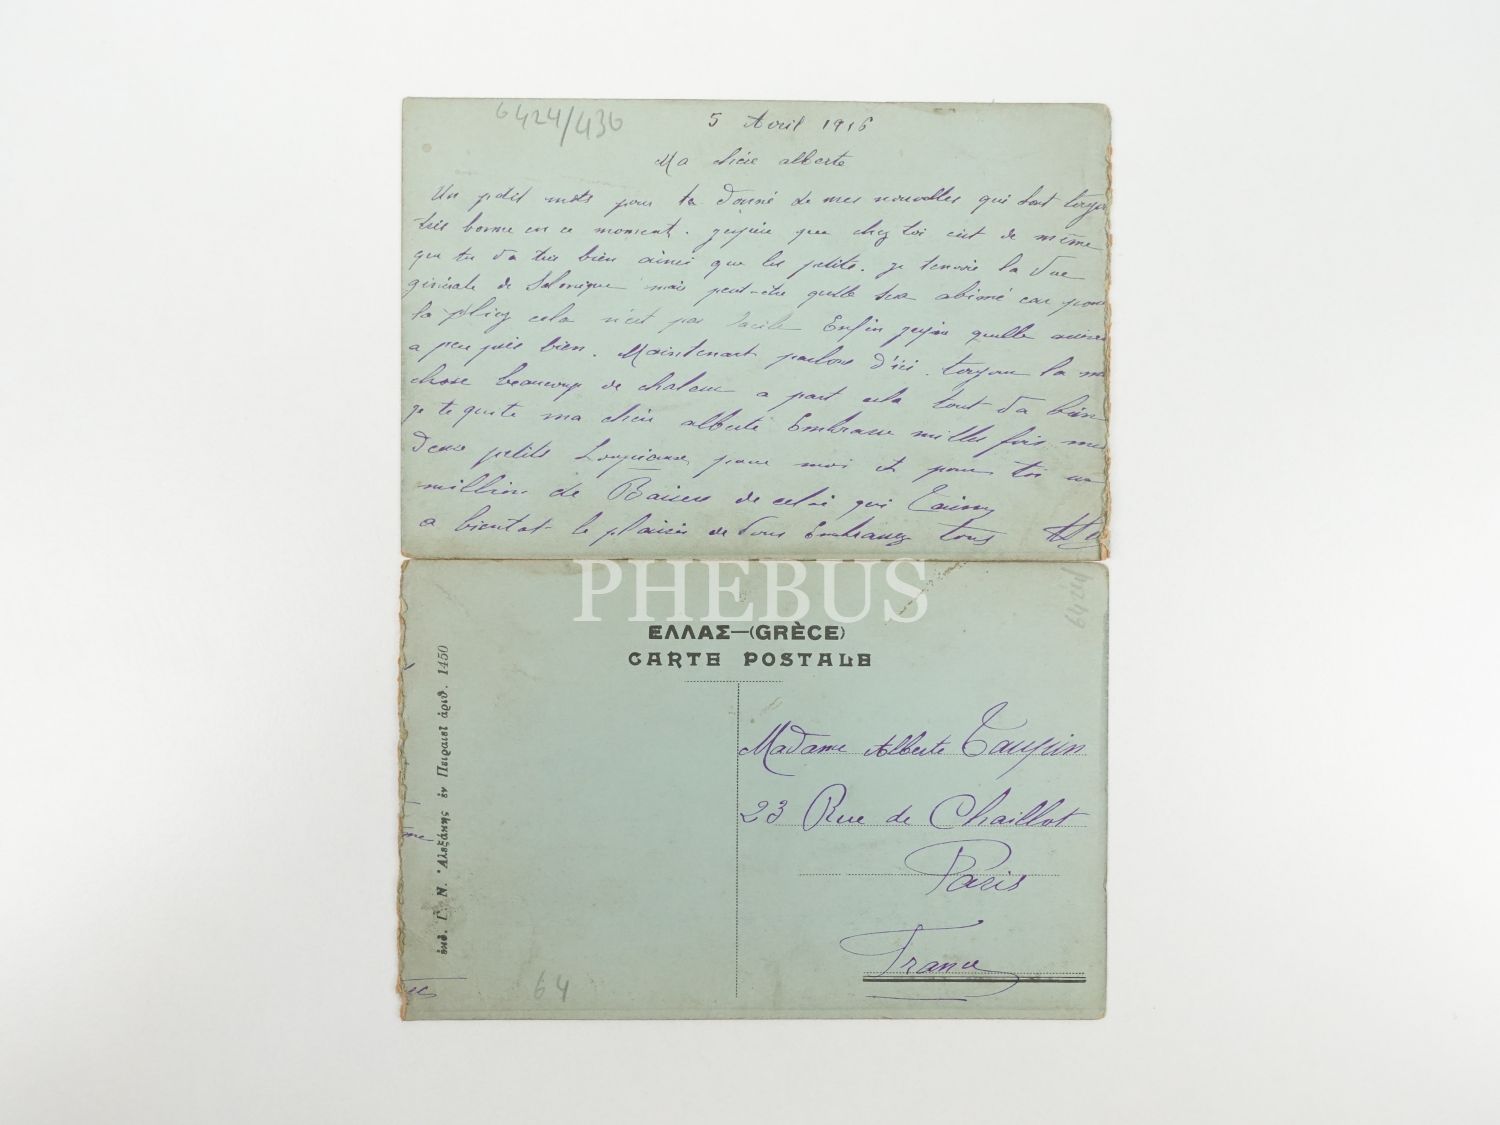 6424/430
5 Avril 1916
Ma chère alberte
Un petit mots pour te donné de mes nouvelles qui sont toujou
très bonne en ce moment. j'espère que chez toi c'est de même
que tu va très bien ainsi que les petits. je t'envoie la vue
générale de Salonique mais peut-être quelle sera abimé car pour
la pliez cela n'est pas facile Enfin j'espère quelle arriver
a peu près bien. Maintenant parlons d'ici. toujours la me
chose beaucoup de chaleur a part cela tout va bien
je te quitte ma chère alberte Embrasse milles fois mes
deux petits pour moi et pour toi un
million de Baisers de celui qui t'aime
a bientot le plaisir de vous Embrassez tous
PHEBUS
6424
ΕΛΛΑΣ—(GRÈCE)
CARTE POSTALE
ἐκδ. Γ. Ν. Ἀλεξάκης ἐν Πειραιεῖ ἀριθ. 1450
Madame Alberte Taupin
23 Rue de Chaillot
Paris
France
64